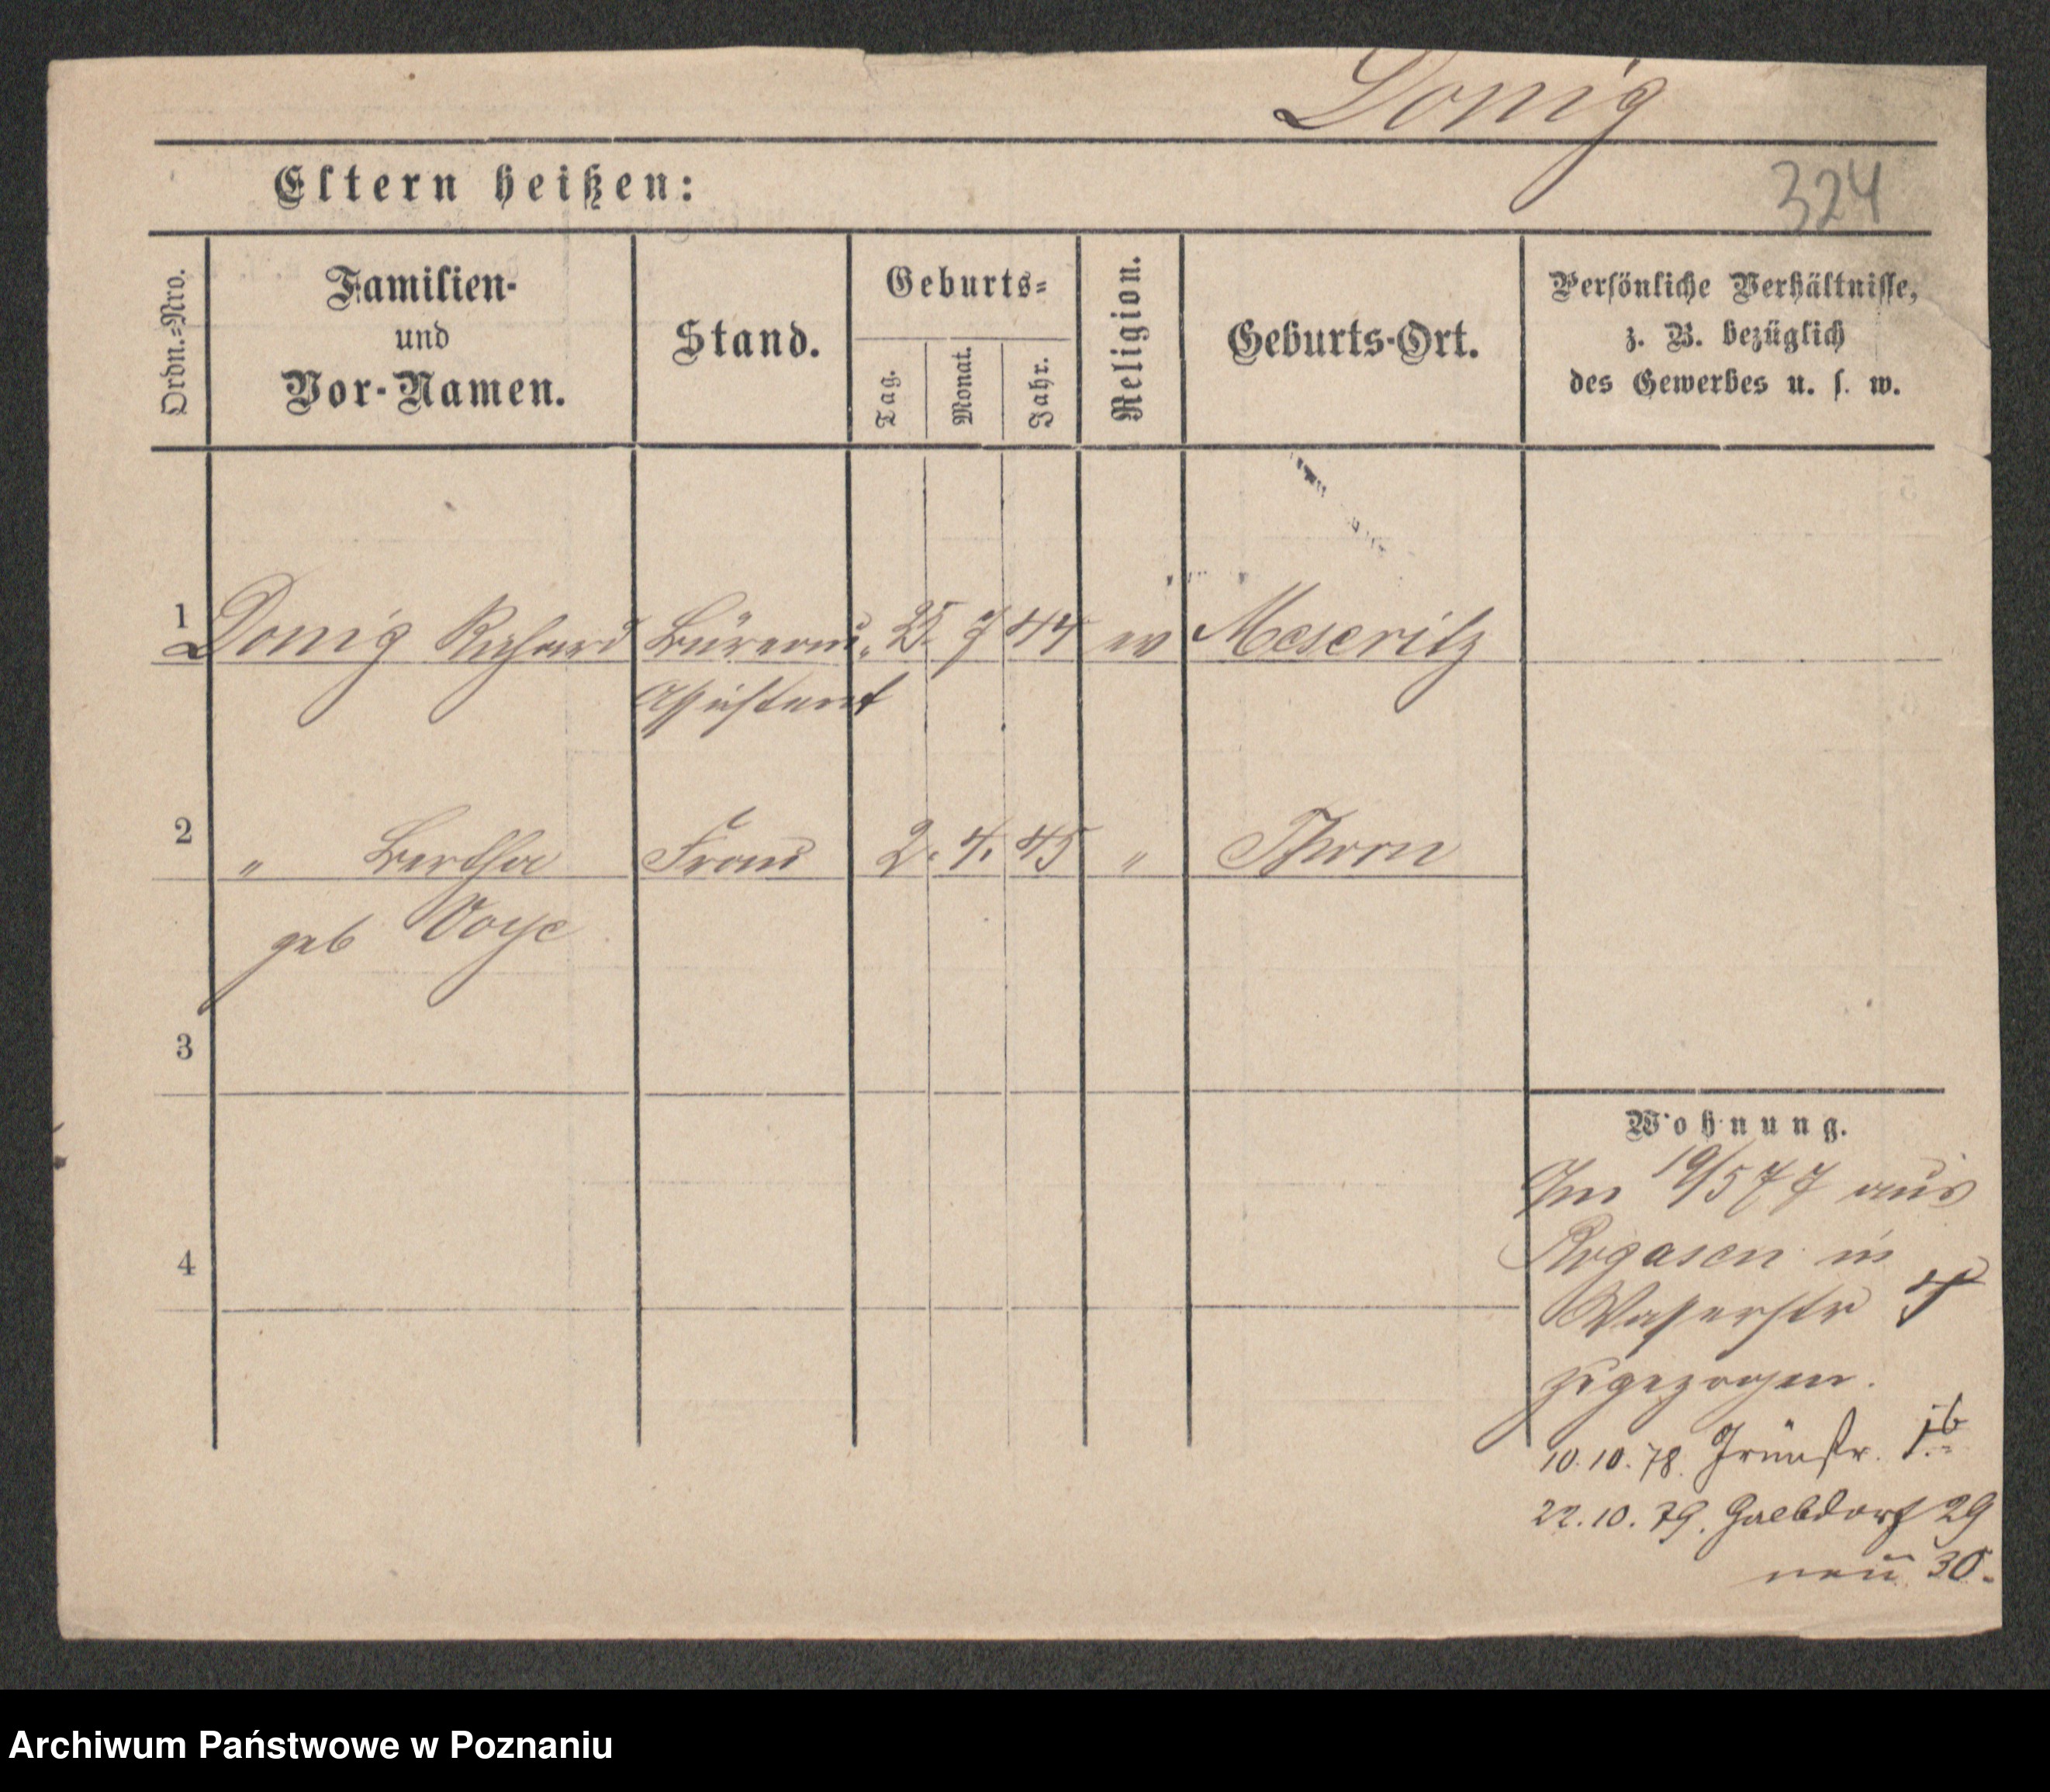 Donig
324
Eltern heißen:
Ordn.-Nro.
Familien-
und
Vor-Namen.
Stand.
Geburts-
Tag.
Monat.
Jahr.
Religion.
Geburts-Ort.
Persönliche Verhältnisse,
z. B. bezüglich
des Gewerbes u. s. w.
1 Donig Richard Büreau- 25. 7 44 ev Meseritz
Assistent
2 " Bertha Frau 2. 4. 45 " Thorn
geb Voye
3
4
Wohnung.
Im 19/5 77 aus
Rogasen in
Wasserstr
zugezogen.
10.10.78. Grünstr.
22.10.79. Halbdorf 29
neu 30.
Archiwum Państwowe w Poznaniu